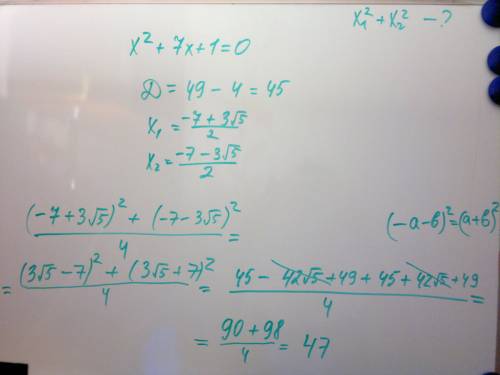 x₁² + x₂² – ?
x² + 7x + 1 = 0
Д = 49 – 4 = 45
x₁ = (-7 + 3√5)/2
x₂ = (-7 – 3√5)/2
((-7 + 3√5)² + (-7 – 3√5)²)/4 =
(-a – b)² = (a + b)²
= ((3√5 – 7)² + (3√5 + 7)²)/4 = (45 – 42√5 + 49 + 45 + 42√5 + 49)/4 =
= (90 + 98)/4 = 47